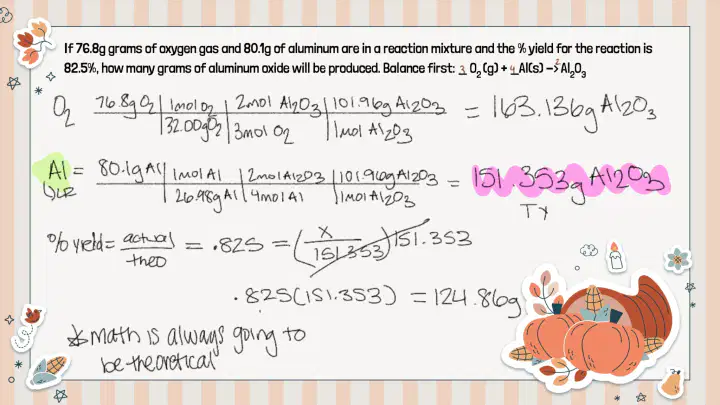 If 76.8g grams of oxygen gas and 80.1g of aluminum are in a reaction mixture and the % yield for the reaction is
82.5%, how many grams of aluminum oxide will be produced. Balance first: 3 O₂ (g) + 4 Al(s) –> 2 Al₂O₃
O₂ 76.8g O₂ | 1mol O₂ | 2mol Al₂O₃ | 101.96g Al₂O₃ = 163.136g Al₂O₃
32.00g O₂ | 3mol O₂ | 1mol Al₂O₃
Al = 80.1g Al | 1mol Al | 2mol Al₂O₃ | 101.96g Al₂O₃ = 151.353g Al₂O₃
↳LR 26.98g Al | 4mol Al | 1mol Al₂O₃ TY
% yield = actual/theo = .825 = (x/151.353) 151.353
.825(151.353) = 124.86g
*math is always going to
be theoretical